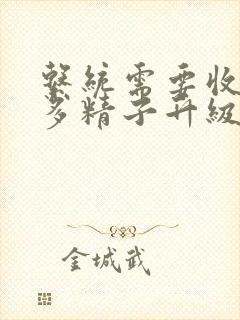 繫統需要收
多精子升級
金城武